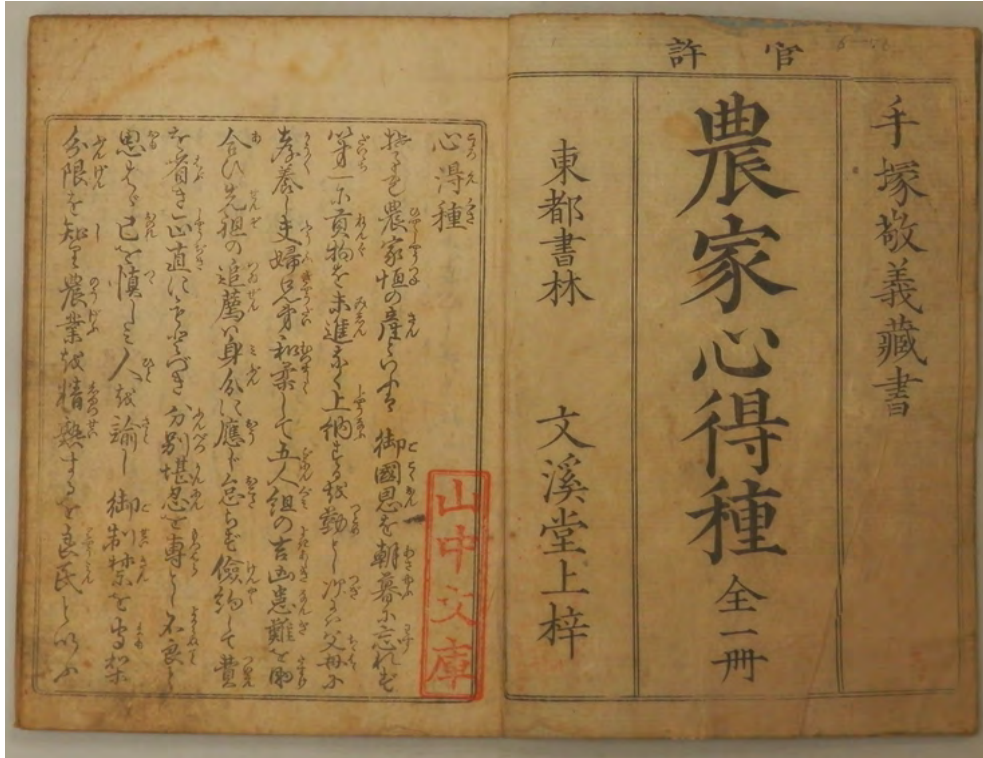 官許
手塚敬義藏書
農家心得種 全一冊
東都書林 文溪堂上梓
山中文庫
心得種
農家恒の産
第一に貢物を未進なく上納するを勤とし次には父母に
孝養し夫婦兄弟和柔して五人組の吉凶患難を
合ひ先祖の追薦は身分に應じ怠らず儉約して費
を省き正直にもとづき分別堪忍を専とし不良を
思はず己を慎しみ人を諭し御制禁を守り
分限を知り農業を精熟するを良民といふ